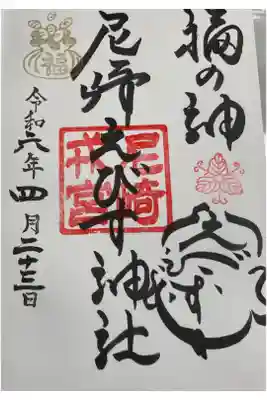 福の神
尼崎えびす神社
尼崎
戎宮
福
令和六年四月二十三日